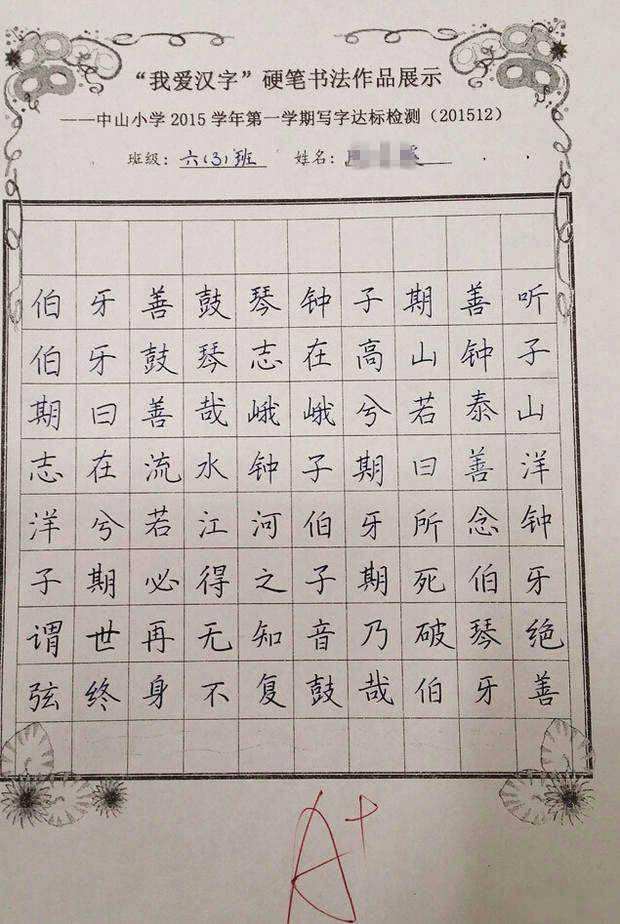 “我爱汉字”硬笔书法作品展示
——中山小学2015学年第一学期写字达标检测（201512）
班级：六(3)班 姓名：
伯牙善鼓琴钟子期善听
伯牙鼓琴志在高山钟子
期曰善哉峨峨兮若泰山
志在流水钟子期曰善洋
洋兮若江河伯牙所念钟
子期必得之子期死伯牙
谓世再无知音乃破琴绝
弦终身不复鼓哉伯牙善
A+